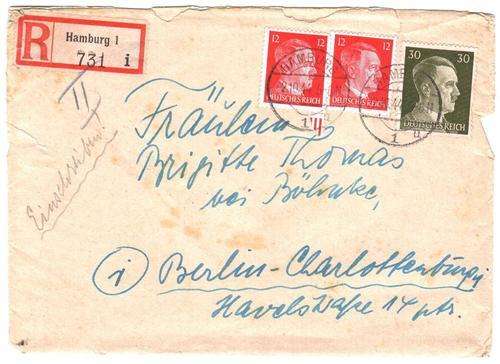 R
Hamburg 1
731 i
12
12
30
30
DEUTSCHES REICH
DEUTSCHES REICH
DEUTSCHES REICH
II
4
Einschreiben
Fräulein
Brigitte Thomas
bei Böhnke,
i Berlin-Charlottenburg
Havelstraße 14 ptr.